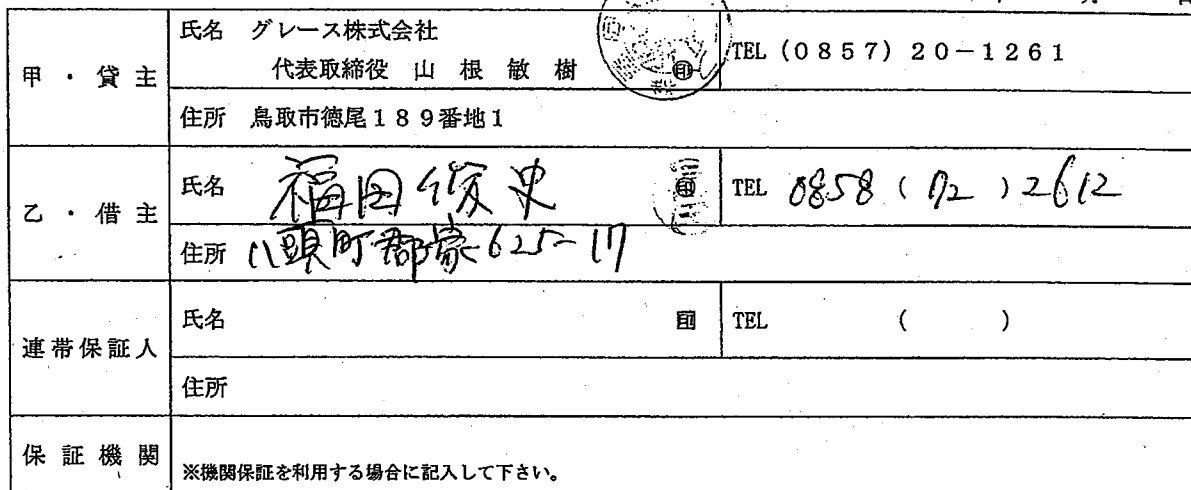 甲・貸主
氏名 グレース株式会社
代表取締役 山根敏樹 印
TEL (0857) 20-1261
住所 鳥取市徳尾189番地1
乙・借主
氏名 福田俊史 印
TEL 0858 (72) 2612
住所 八頭町郡家625-17
連帯保証人
氏名 印
TEL ( )
住所
保証機関
※機関保証を利用する場合に記入して下さい。